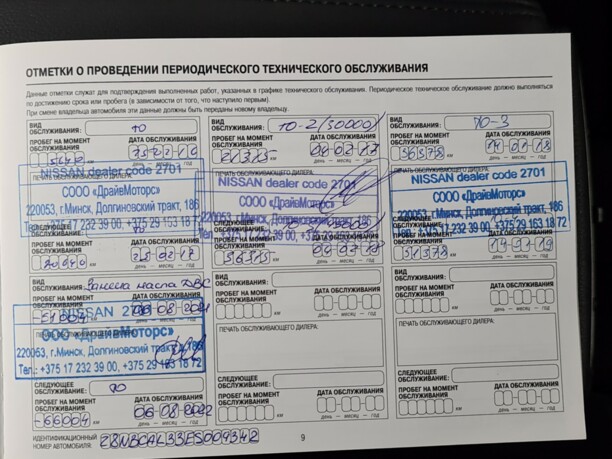 ОТМЕТКИ О ПРОВЕДЕНИИ ПЕРИОДИЧЕСКОГО ТЕХНИЧЕСКОГО ОБСЛУЖИВАНИЯ
Данные отметки служат для подтверждения выполненных работ, указанных в графике технического обслуживания. Периодическое техническое обслуживание должно выполняться
по достижению срока или пробега (в зависимости от того, что наступило первым).
При смене владельца автомобиля эти данные должны быть переданы новому владельцу.
ВИД ОБСЛУЖИВАНИЯ: ТО
ПРОБЕГ НА МОМЕНТ ОБСЛУЖИВАНИЯ ДАТА ОБСЛУЖИВАНИЯ
км день — месяц — год
ПЕЧАТЬ ОБСЛУЖИВАЮЩЕГО ДИЛЕРА:
NISSAN dealer code 2701
СООО «ДрайвМоторс»
220053, г.Минск, Долгиновский тракт, 186
Тел.: +375 17 232 39 00, +375 29 153 18 72
ПРОБЕГ НА МОМЕНТ ОБСЛУЖИВАНИЯ ДАТА ОБСЛУЖИВАНИЯ
км день — месяц — год
ВИД ОБСЛУЖИВАНИЯ: ТО-2 (30000)
ПРОБЕГ НА МОМЕНТ ОБСЛУЖИВАНИЯ ДАТА ОБСЛУЖИВАНИЯ
21315
км день — месяц — год
NISSAN dealer code 2701
СООО «ДрайвМоторс»
220053, г.Минск, Долгиновский тракт, 186
ПРОБЕГ НА МОМЕНТ ОБСЛУЖИВАНИЯ ДАТА ОБСЛУЖИВАНИЯ
36315
км день — месяц — год
ВИД ОБСЛУЖИВАНИЯ: ТО-3
ПРОБЕГ НА МОМЕНТ ОБСЛУЖИВАНИЯ ДАТА ОБСЛУЖИВАНИЯ
36378 14 01 18
км день — месяц — год
ПЕЧАТЬ ОБСЛУЖИВАЮЩЕГО ДИЛЕРА:
NISSAN dealer code 2701
СООО «ДрайвМоторс»
220053, г.Минск, Долгиновский тракт, 186
ПРОБЕГ НА МОМЕНТ ОБСЛУЖИВАНИЯ ДАТА ОБСЛУЖИВАНИЯ
51378 14 01 19
км день — месяц — год
Замена масла ДВС
ПРОБЕГ НА МОМЕНТ ОБСЛУЖИВАНИЯ
51004 06 08 2021
NISSAN
ООО «ДрайвМоторс»
220053, г.Минск, Долгиновский тракт, 186
Тел.: +375 17 232 39 00, +375 29 153 18 72
СЛЕДУЮЩЕЕ ОБСЛУЖИВАНИЕ: ТО
ПРОБЕГ НА МОМЕНТ ОБСЛУЖИВАНИЯ ДАТА ОБСЛУЖИВАНИЯ
66004 06 08 2022
км день — месяц — год
ВИД ОБСЛУЖИВАНИЯ:
ПРОБЕГ НА МОМЕНТ ОБСЛУЖИВАНИЯ ДАТА ОБСЛУЖИВАНИЯ
км день — месяц — год
ПЕЧАТЬ ОБСЛУЖИВАЮЩЕГО ДИЛЕРА:
СЛЕДУЮЩЕЕ ОБСЛУЖИВАНИЕ:
ПРОБЕГ НА МОМЕНТ ОБСЛУЖИВАНИЯ ДАТА ОБСЛУЖИВАНИЯ
км день — месяц — год
ВИД ОБСЛУЖИВАНИЯ:
ПРОБЕГ НА МОМЕНТ ОБСЛУЖИВАНИЯ ДАТА ОБСЛУЖИВАНИЯ
км день — месяц — год
ПЕЧАТЬ ОБСЛУЖИВАЮЩЕГО ДИЛЕРА:
СЛЕДУЮЩЕЕ ОБСЛУЖИВАНИЕ:
ПРОБЕГ НА МОМЕНТ ОБСЛУЖИВАНИЯ ДАТА ОБСЛУЖИВАНИЯ
км день — месяц — год
ИДЕНТИФИКАЦИОННЫЙ НОМЕР АВТОМОБИЛЯ: Z8NBCAL33ES009342
9